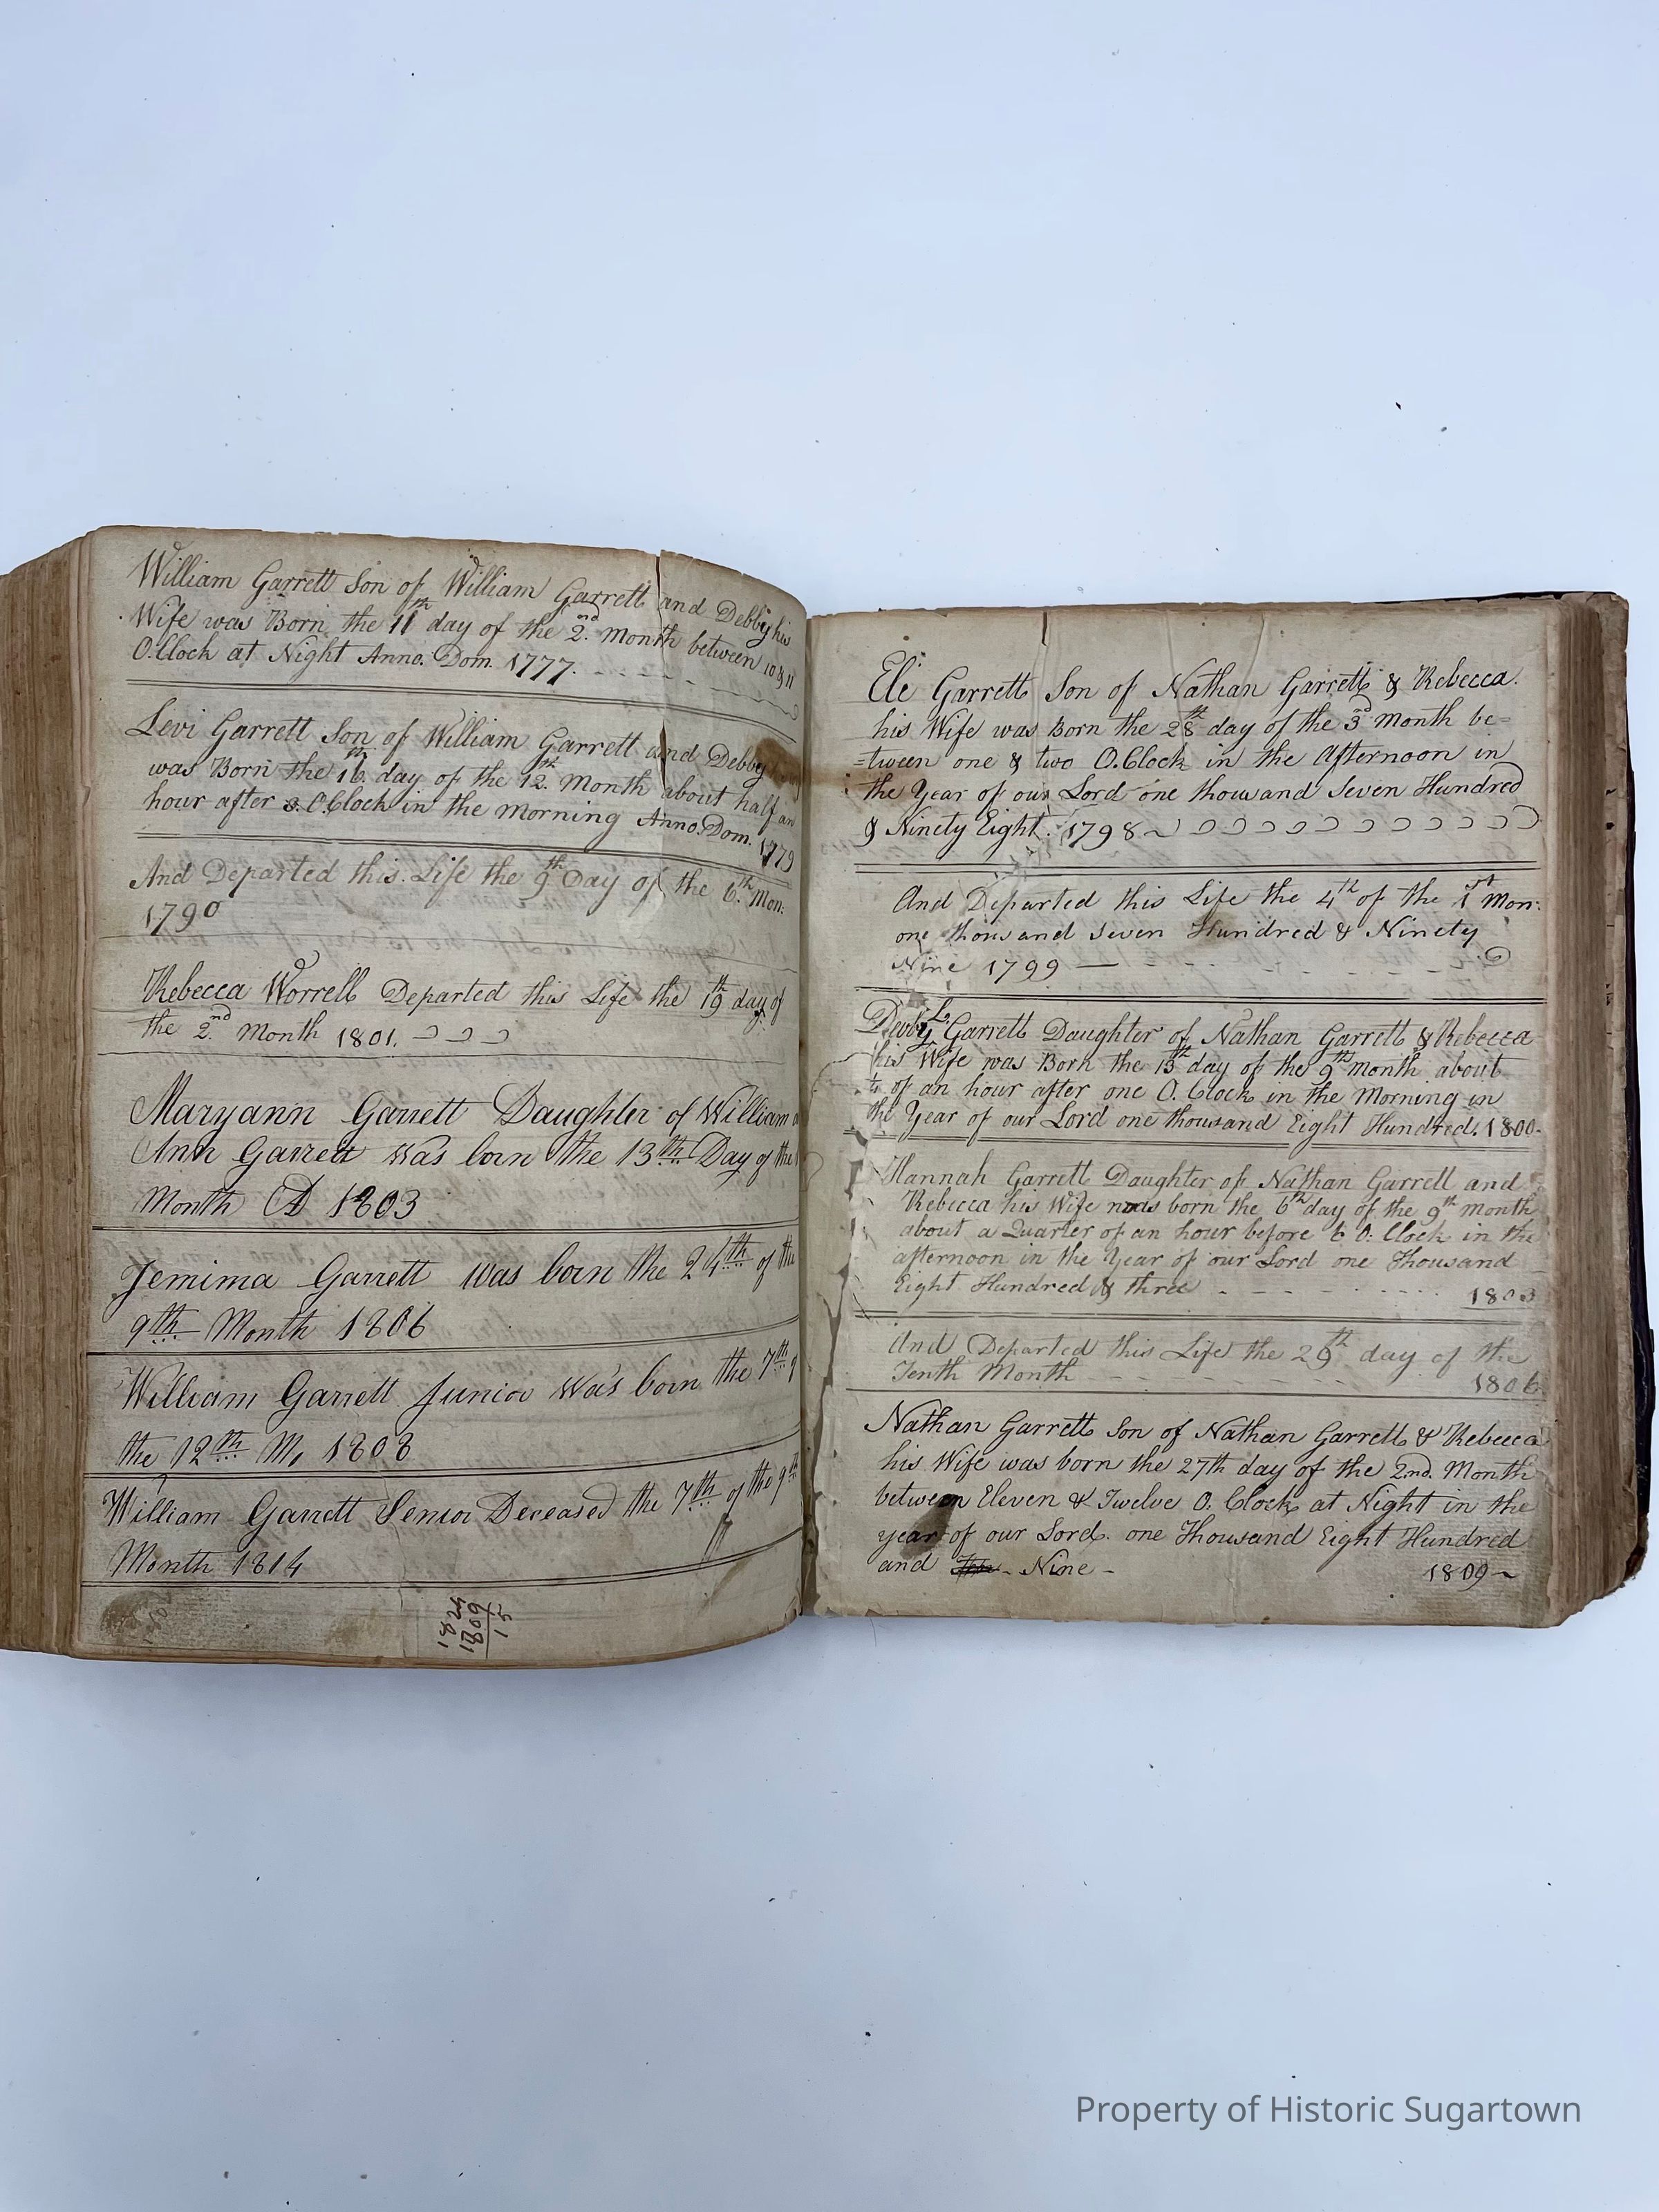 William Garrett Son of William Garrett and Debby his
Wife was Born the 11th day of the 2nd month between 10 & 11
O.Clock at Night Anno. Dom. 1777.
Levi Garrett Son of William Garrett and Debby
was Born the 16th day of the 12th Month about half an
hour after 3. O.Clock in the morning Anno. Dom. 1779
And Departed this Life the 9th Day of the 6th Mon:
1790
Rebecca Worrell Departed this Life the 19th day of
the 2nd Month 1801.
Maryann Garrett Daughter of William
Ann Garrett was born the 13th Day of the
Month AD 1803
Jemima Garrett was born the 24th of the
9th Month 1806
William Garrett Junior was born the 7th
the 12th M, 1808
William Garrett Senior Deceased the 7th of the 9th
Month 1814
1824
1809
15
Eli Garrett Son of Nathan Garrett & Rebecca.
his Wife was Born the 28th day of the 3rd Month be=
=tween one & two O.Clock in the Afternoon in
the Year of our Lord one thousand Seven Hundred
& Ninety Eight. 1798
And Departed this Life the 4th of the 1st Mon:
one thousand seven Hundred & Ninety
Nine 1799
Debby L. Garrett Daughter of Nathan Garrett & Rebecca
his Wife was Born the 13th day of the 9th month about
of an hour after one O. Clock in the Morning in
the Year of our Lord one thousand Eight Hundred. 1800
Hannah Garrett Daughter of Nathan Garrett and
Rebecca his Wife was born the 6th day of the 9th month
about a Quarter of an hour before 6 O. Clock in the
afternoon in the Year of our Lord one Thousand
Eight Hundred & three 1803
And Departed this Life the 29th day of the
Tenth Month 1806
Nathan Garrett Son of Nathan Garrett & Rebecca
his Wife was born the 27th day of the 2nd. Month
between Eleven & Twelve O. Clock at Night in the
year of our Lord. one Thousand Eight Hundred
and - Nine - 1809
Property of Historic Sugartown